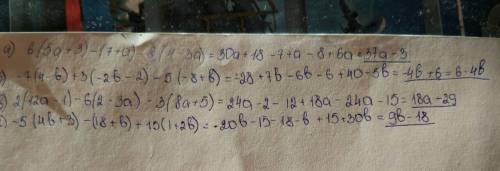 а) 6(5a+3)-(7+a)-2(4-3a)=30a+18-7-a-8+6a=37a+3
) -7(4-b)+3(-2b-2)-5(-8+b)=-28+7b-6b-6+40-5b=-4b+6=6-4b
) 2(12a-1)-6(2-3a)-3(8a+5)=24a-2-12+18a-24a-15=18a-29
) -5(4b+3)-(18+b)+15(1+2b)=-20b-15-18-b+15+30b=9b-18